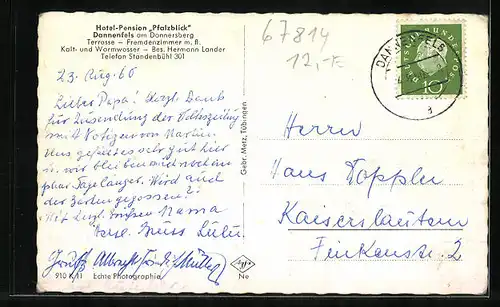 Hotel-Pension „Pfalzblick"
Dannenfels am Donnersberg
Terrasse – Fremdenzimmer m. fl.
Kalt- und Warmwasser – Bes. Hermann Lander
Telefon Standenbühl 301
67814
12,-
DANNENFELS
10
a
23. Aug. 60
Lieber Papa! Herzl. Dank
für Zusendung der Volkszeitung
mit Notizen von Martin.
Uns gefällt es sehr gut hier
u. wir bleiben auch noch ein
paar Tage länger. Wird auch
der Garten gegossen?!
Mit herzl. Grüßen Mama
Gruss Lulu.
Albrecht Müller
Gebr. Metz, Tübingen
Herrn
Hans Doppler
Kaiserslautern
Finkenstr. 2
Echte Photographie
Agfa
Ne